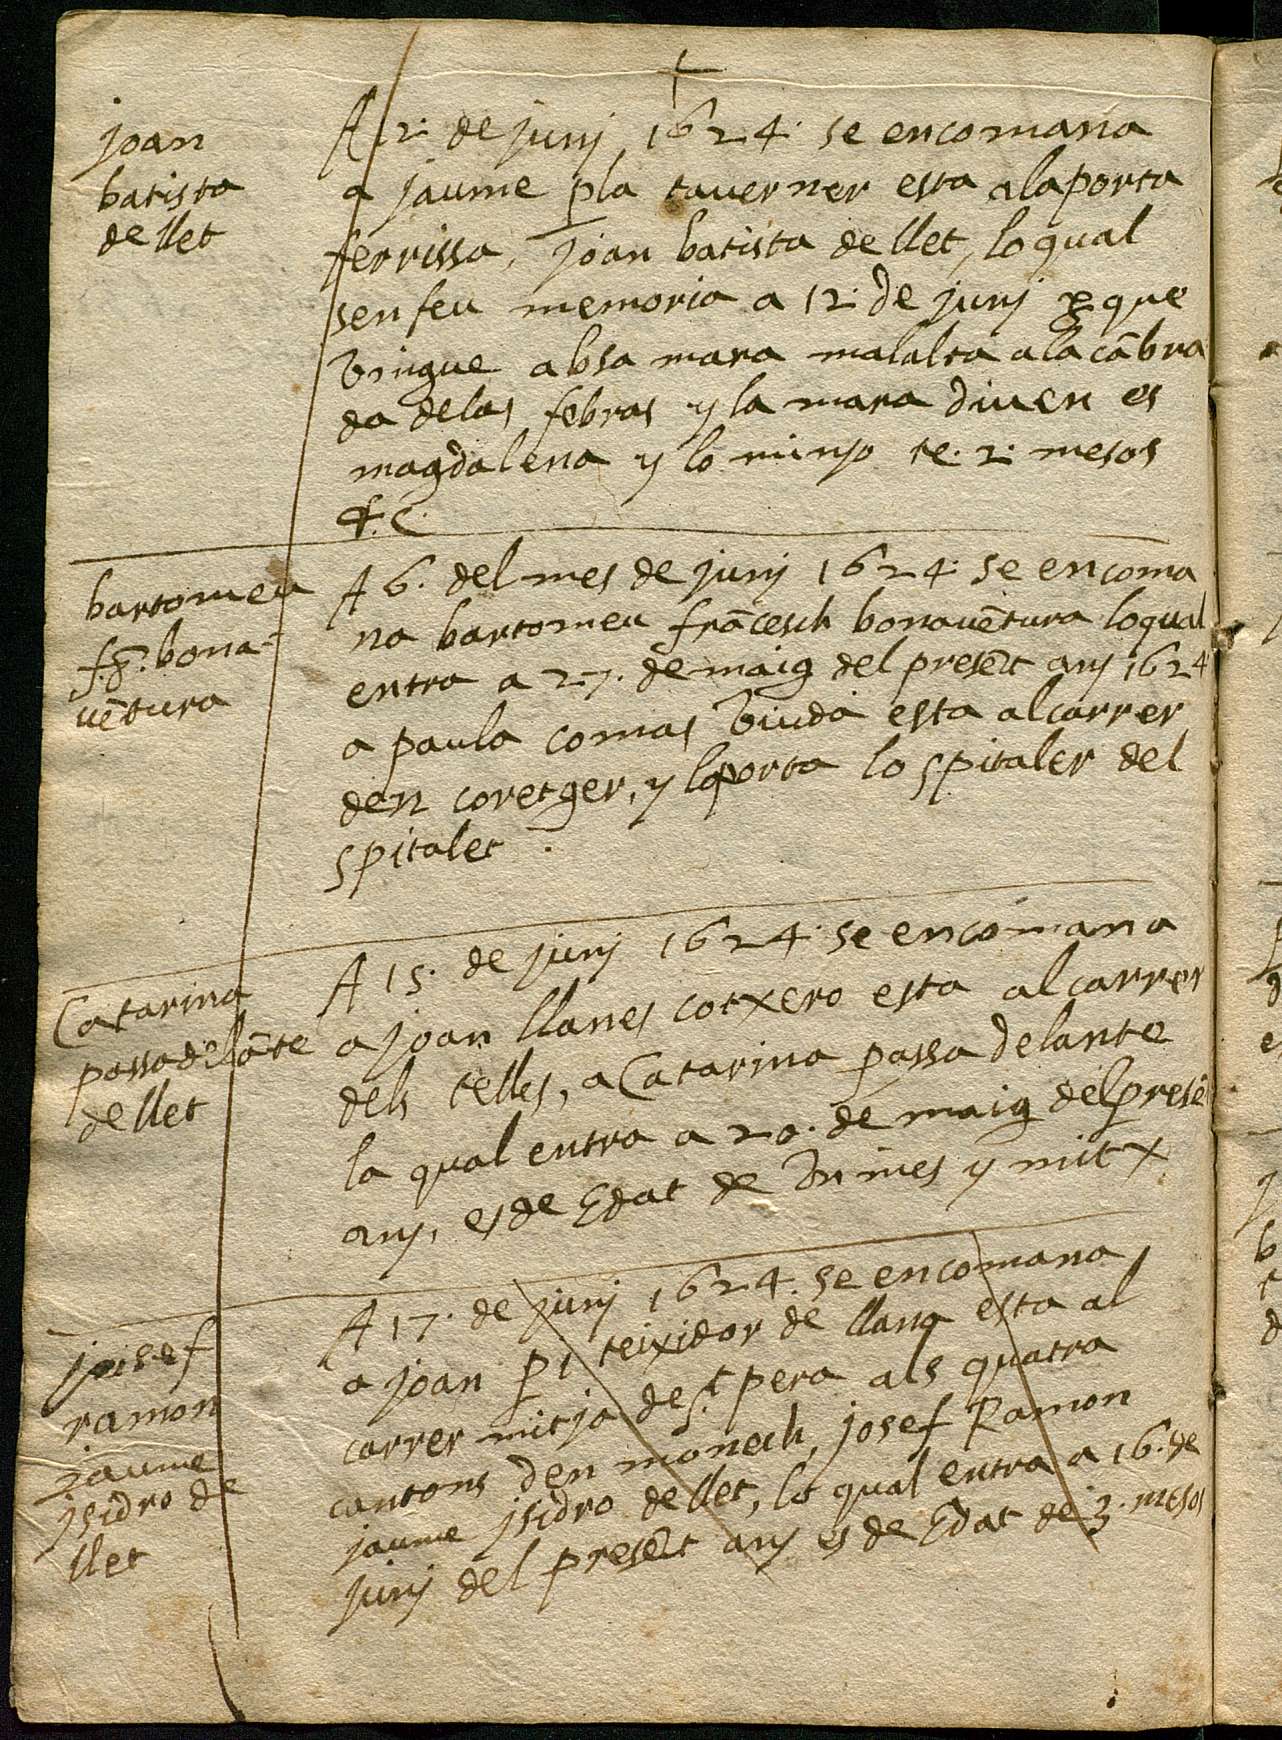 joan
batista
de llet
A 2. de junj 1624. se encomana
a jaume pla taverner esta alaporta
ferrissa, joan batista de llet, loqual
sen feu memoria a 12. de junj que
vingue absa mara malalta ala cābra
da delas febras y la mara diuen es
magdalena y lo minyo te. 2. mesos
bartomeu
bona-
uētura
A 6. del mes de junj 1624. se encoma
na bartomeu frācesch bonauētura loqual
entra a 27. de maig del presēt anj 1624
a paula comas viuda esta alcarrer
den coretger, y loporta lo spitaler del
spitalet.
Catarina
passadelāte
de llet
A 15. de junj 1624. se encomana
a joan llanes cotxero esta alcarrer
dels telles, a Catarina passa delante
la qual entra a 20. de maig delpresē
anj, es de Edat de vn mes y mitx
josef
ramon
jaume
jsidro de
llet
A 17. de junj 1624. se encomana
a joan pi teixidor de llana esta al
carrer mitja de st pera als quatra
cantons den monech, josef Ramon
jaume jsidro de llet, lo qual entra a 16. de
junj del presēt anj es de Edat de 3. mesos